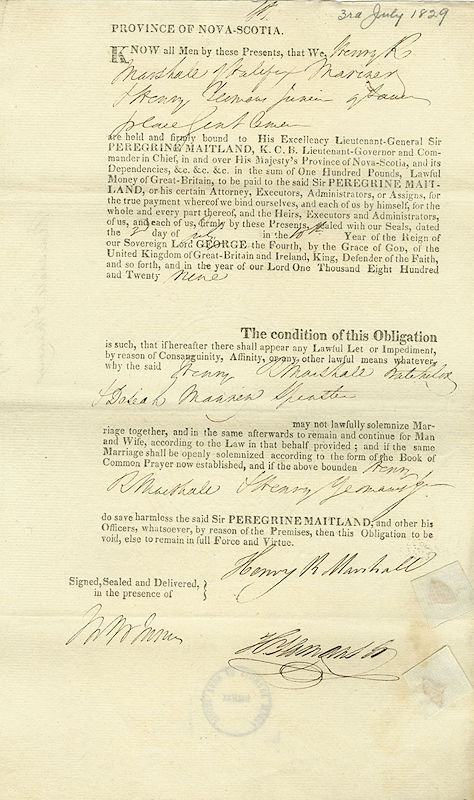 3rd July 1829
PROVINCE OF NOVA-SCOTIA.
KNOW all Men by these Presents, that We, Henry R
Marshall of Halifax Mariner
& Henry Yeomans Junior of same
place Gentleman
are held and firmly bound to His Excellency Lieutenant-General Sir
PEREGRINE MAITLAND, K. C. B. Lieutenant-Governor and Com-
mander in Chief, in and over His Majesty's Province of Nova-Scotia, and its
Dependencies, &c. &c. &c. in the sum of One Hundred Pounds, Lawful
Money of Great-Britain, to be paid to the said Sir PEREGRINE MAIT-
LAND, or his certain Attorney, Executors, Administrators, or Assigns, for
the true payment whereof we bind ourselves, and each of us by himself, for the
whole and every part thereof, and the Heirs, Executors and Administrators,
of us, and each of us, firmly by these Presents, Sealed with our Seals, dated
the day of July in the 10th Year of the Reign of
our Sovereign Lord GEORGE the Fourth, by the Grace of God, of the
United Kingdom of Great-Britain and Ireland, King, Defender of the Faith,
and so forth, and in the year of our Lord One Thousand Eight Hundred
and Twenty nine
The condition of this Obligation
is such, that if hereafter there shall appear any Lawful Let or Impediment,
by reason of Consanguinity, Affinity, or any other lawful means whatever,
why the said Henry R Marshall Batchelor
& Spinster
may not lawfully solemnize Mar-
riage together, and in the same afterwards to remain and continue for Man
and Wife, according to the Law in that behalf provided ; and if the same
Marriage shall be openly solemnized according to the form of the Book of
Common Prayer now established, and if the above bounden Henry
R Marshall & Henry Yeomans Jr
do save harmless the said Sir PEREGRINE MAITLAND, and other his
Officers, whatsoever, by reason of the Premises, then this Obligation to be
void, else to remain in full Force and Virtue.
Henry R Marshall
Signed, Sealed and Delivered,
in the presence of
H Yeomans Jr